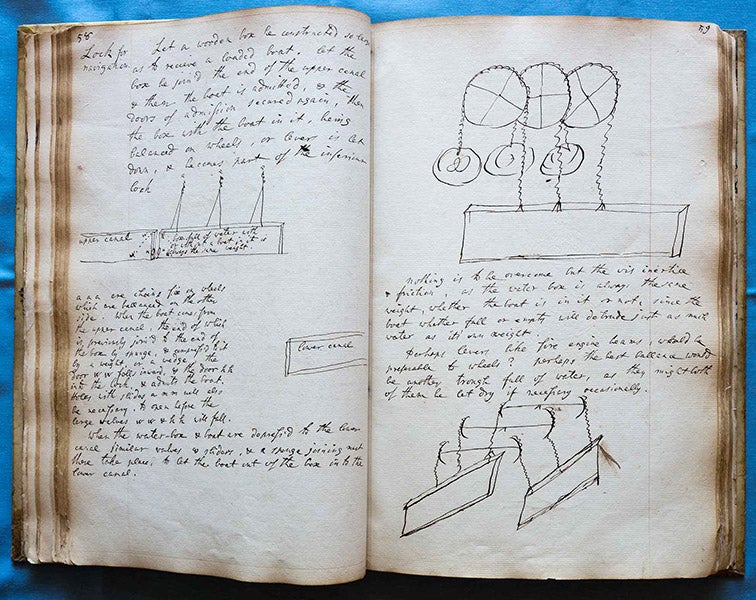 58
Lock for
navigation
Let a wooden box be constructed so large
as to receive a loaded boat. let the
box be join'd the end of the upper canal
& then the boat is admitted, & the
doors of admission secured again, then
the box with the boat in it, being
ballanced on wheels, or lever is let
down, & becomes part of the inferior
lock
a a a
upper canal
box full of water with
or without a boat in it is
always the same weight
a a a are chains fix'd on wheels
which are ballanced on the other
side. When the boat comes from
the upper canal, the end of which
is previously join'd to the end of
the box by spunge, & compress'd tight
by a weight or a wedge, the
door w w falls inward, & the door h h
into the lock, & admits the boat.
holes with slides m m will also
be necessary, to open before the
large valves w w & h h will fall.
lower canal
When the water-box & boat are depress'd to the lower
canal similar valves & sliders, & a spunge joining must
there take place, to let the boat out of the box in to the
lower canal.
59
nothing is to be overcome but the vis inertiae
& friction, as the water box is always the same
weight, whether the boat is in it or not, since the
boat whether full or empty will detrude just as much
water as its own weight.
Perhaps levers like fire engine beams, would be
preferable to wheels? perhaps the best ballance would
be another trough full of water, as they might both
of them be let dry if necessary occasionally.